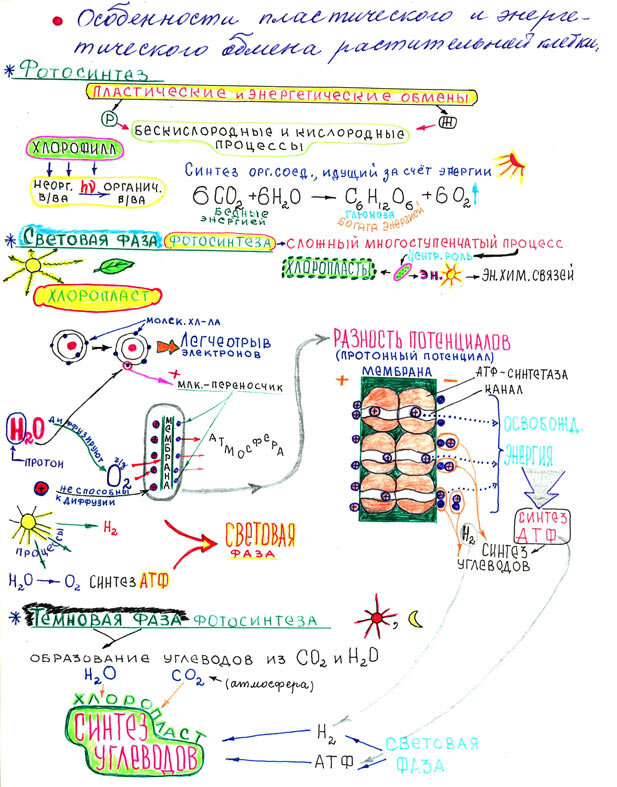 Особенности пластического и энерге-
тического обмена растительной клетки.
* Фотосинтез
ПЛАСТИЧЕСКИЕ И ЭНЕРГЕТИЧЕСКИЕ ОБМЕНЫ
Р
Ж
БЕСКИСЛОРОДНЫЕ И КИСЛОРОДНЫЕ
ПРОЦЕССЫ
ХЛОРОФИЛЛ
НЕОРГ. hν ОРГАНИЧ.
В/ВА В/ВА
СИНТЕЗ ОРГ.СОЕД., ИДУЩИЙ ЗА СЧЁТ ЭНЕРГИИ
6CO2+6H2O → C6H12O6 + 6O2↑
БЕДНЫЕ ЭНЕРГИЕЙ
ГЛЮКОЗА
БОГАТА ЭНЕРГИЕЙ
* СВЕТОВАЯ ФАЗА ФОТОСИНТЕЗА → СЛОЖНЫЙ МНОГОСТУПЕНЧАТЫЙ ПРОЦЕСС
ЦЕНТР. РОЛЬ
ХЛОРОПЛАСТЫ
ЭН. → ЭН.ХИМ.СВЯЗЕЙ
ХЛОРОПЛАСТ
МОЛЕК. ХЛ-ЛА
ЛЕГЧЕ ОТРЫВ
ЭЛЕКТРОНОВ
+
МЛК.-ПЕРЕНОСЧИК
H2O
ДИФФУНДИРУЮТ
ПРОТОН
O2
МЕМБРАНА
АТМОСФЕРА
НЕ СПОСОБНЫ
К ДИФФУЗИИ
РАЗНОСТЬ ПОТЕНЦИАЛОВ
(ПРОТОННЫЙ ПОТЕНЦИАЛ)
+ МЕМБРАНА −
АТФ-СИНТЕТАЗА
КАНАЛ
ОСВОБОЖД.
ЭНЕРГИЯ
СИНТЕЗ
АТФ
H2
СИНТЕЗ
УГЛЕВОДОВ
ПРОЦЕССЫ
H2
H2O → O2 СИНТЕЗ АТФ
СВЕТОВАЯ
ФАЗА
* ТЕМНОВАЯ ФАЗА ФОТОСИНТЕЗА
ОБРАЗОВАНИЕ УГЛЕВОДОВ ИЗ CO2 и H2O
H2O CO2 (атмосфера)
ХЛОРОПЛАСТ
СИНТЕЗ
УГЛЕВОДОВ
H2
АТФ
СВЕТОВАЯ
ФАЗА